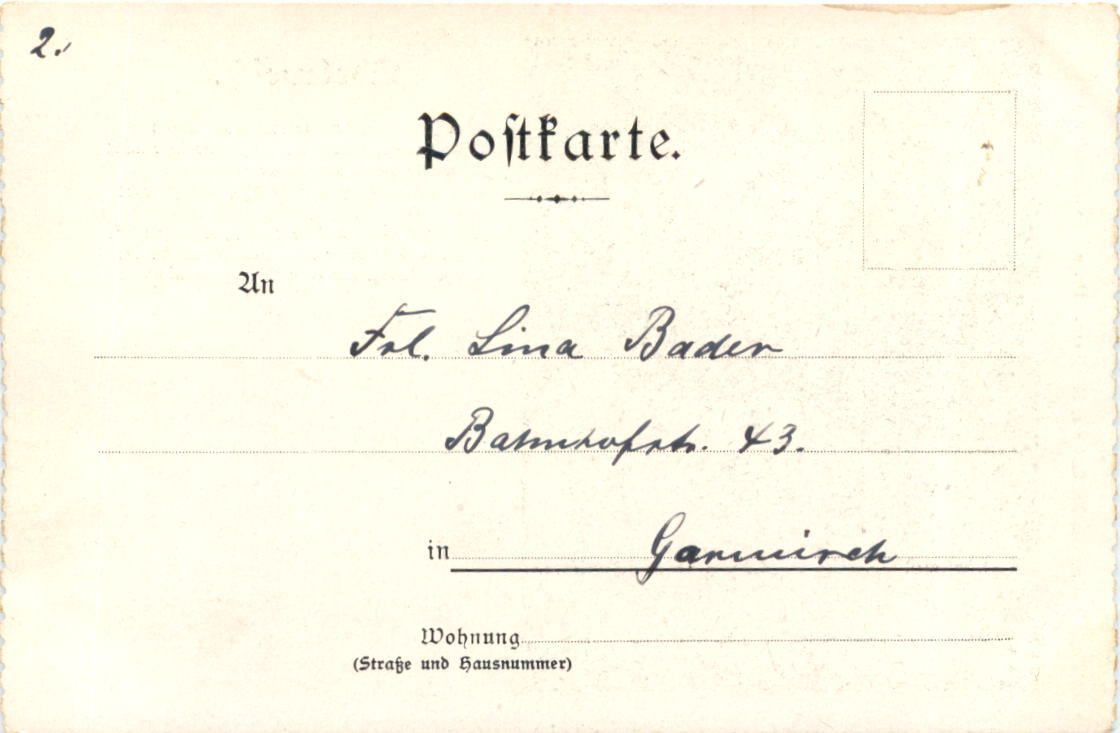 2.
Postkarte.
An
Frl. Lina Bader
Bahnhofstr. 43.
in Garmisch
Wohnung
(Straße und Hausnummer)